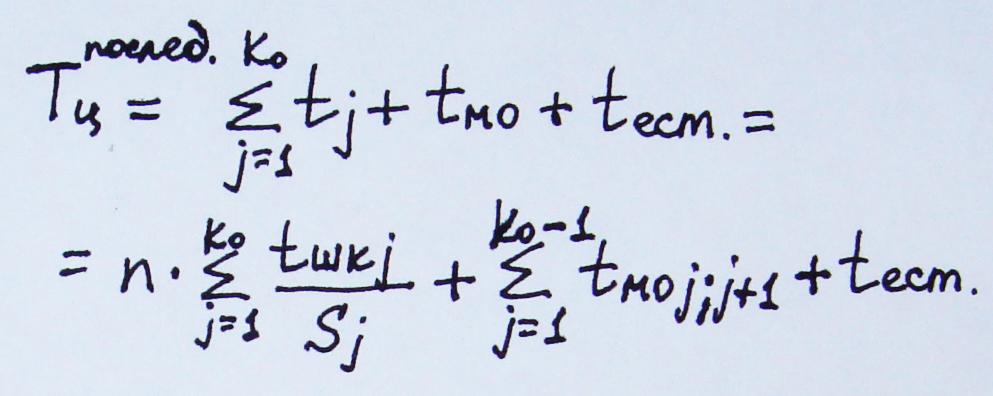 T_ц^послед. = ∑_{j=1}^{K₀} t_j + t_мо + t_ест. =
= n · ∑_{j=1}^{K₀} t_шкj / S_j + ∑_{j=1}^{K₀-1} t_мо j;j+1 + t_ест.